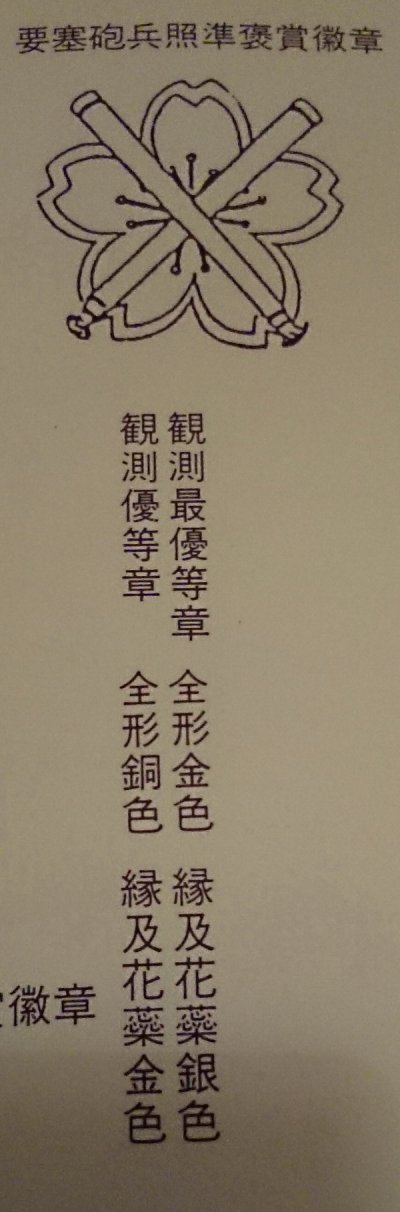 要塞砲兵照準褒賞徽章
観測最優等章 全形金色 縁及花蘂銀色
観測優等章 全形銅色 縁及花蘂金色
徽章